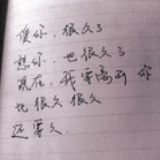 爱你，很久了
想你，也很久了
现在，我要离开你
比很久很久
还要久